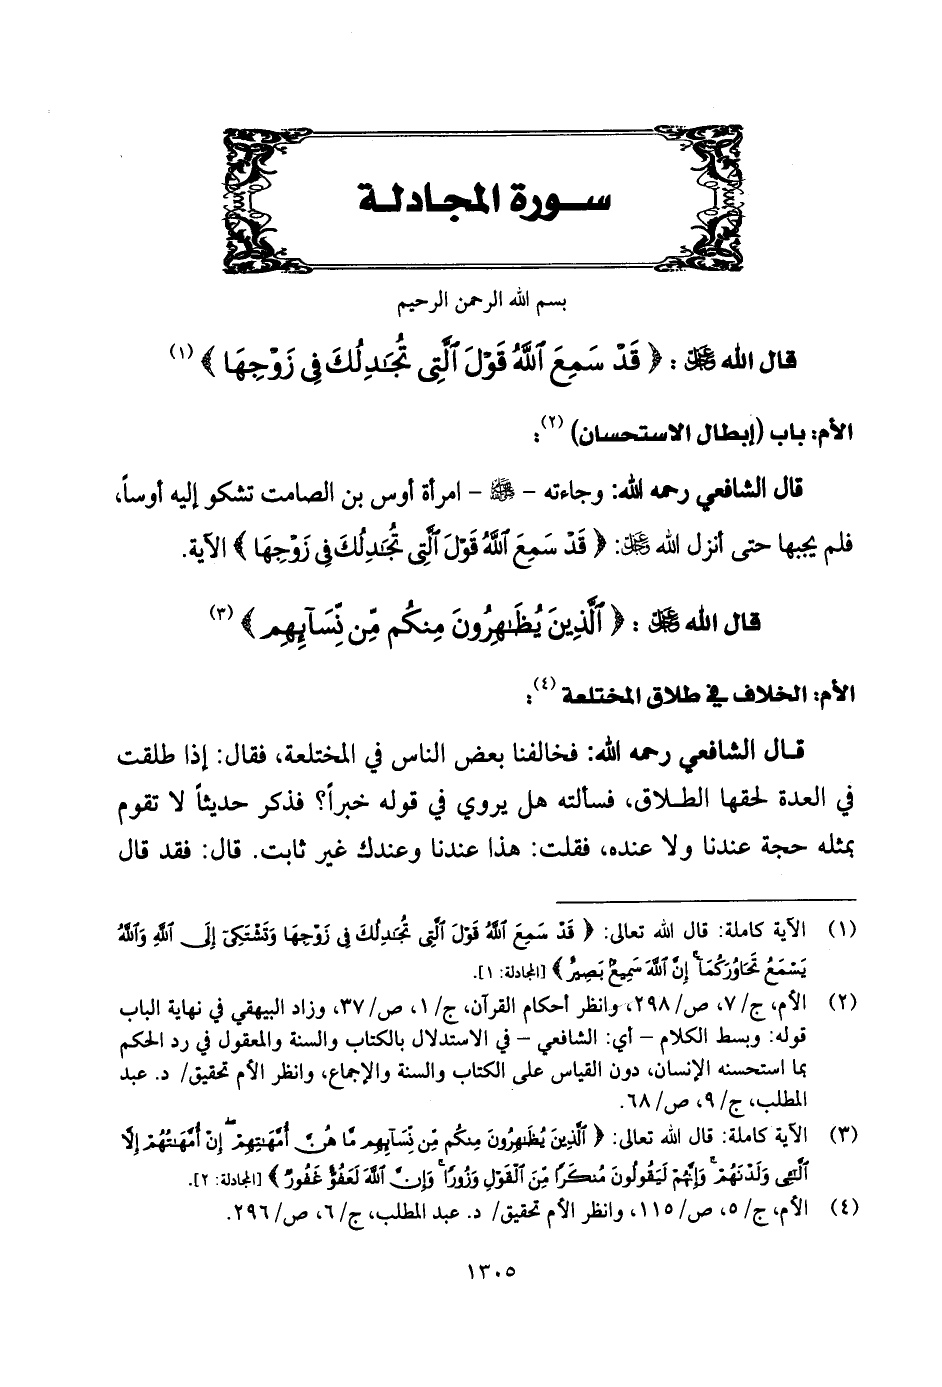 سورة المجادلة
بسم الله الرحمن الرحيم
قال الله ﷿ : ﴿ قَدْ سَمِعَ ٱللَّهُ قَوْلَ ٱلَّتِى تُجَـٰدِلُكَ فِى زَوْجِهَا ﴾ (١)
الأم: باب (إبطال الاستحسان) (٢):
قال الشافعي رحمه الله: وجاءته – ﷺ – امرأة أوس بن الصامت تشكو إليه أوساً،
فلم يجبها حتى أنزل الله ﷿: ﴿ قَدْ سَمِعَ ٱللَّهُ قَوْلَ ٱلَّتِى تُجَـٰدِلُكَ فِى زَوْجِهَا ﴾ الآية.
قال الله ﷿ : ﴿ ٱلَّذِينَ يُظَـٰهِرُونَ مِنكُم مِّن نِّسَآئِهِم ﴾ (٣)
الأم: الخلاف في طلاق المختلعة (٤):
قال الشافعي رحمه الله: فخالفنا بعض الناس في المختلعة، فقال: إذا طلقت
في العدة لحقها الطلاق، فسألته هل يروي في قوله خبراً؟ فذكر حديثاً لا تقوم
بمثله حجة عندنا ولا عنده، فقلت: هذا عندنا وعندك غير ثابت. قال: فقد قال
(١) الآية كاملة: قال الله تعالى: ﴿ قَدْ سَمِعَ ٱللَّهُ قَوْلَ ٱلَّتِى تُجَـٰدِلُكَ فِى زَوْجِهَا وَتَشْتَكِىٓ إِلَى ٱللَّهِ وَٱللَّهُ
يَسْمَعُ تَحَاوُرَكُمَآ ۚ إِنَّ ٱللَّهَ سَمِيعٌۢ بَصِيرٌ ﴾ [المجادلة: ١].
(٢) الأم، ج/٧، ص/٢٩٨، وانظر أحكام القرآن، ج/١، ص/٣٧، وزاد البيهقي في نهاية الباب
قوله: وبسط الكلام – أي: الشافعي – في الاستدلال بالكتاب والسنة والمعقول في رد الحكم
بما استحسنه الإنسان، دون القياس على الكتاب والسنة والإجماع، وانظر الأم تحقيق/ د. عبد
المطلب، ج/٩، ص/٦٨.
(٣) الآية كاملة: قال الله تعالى: ﴿ ٱلَّذِينَ يُظَـٰهِرُونَ مِنكُم مِّن نِّسَآئِهِم مَّا هُنَّ أُمَّهَـٰتِهِمْ ۖ إِنْ أُمَّهَـٰتُهُمْ إِلَّا
ٱلَّـٰٓـِٔى وَلَدْنَهُمْ ۚ وَإِنَّهُمْ لَيَقُولُونَ مُنكَرًا مِّنَ ٱلْقَوْلِ وَزُورًا ۚ وَإِنَّ ٱللَّهَ لَعَفُوٌّ غَفُورٌ ﴾ [المجادلة: ٢].
(٤) الأم، ج/٥، ص/١١٥، وانظر الأم تحقيق/ د. عبد المطلب، ج/٦، ص/٢٩٦.
١٣٠٥